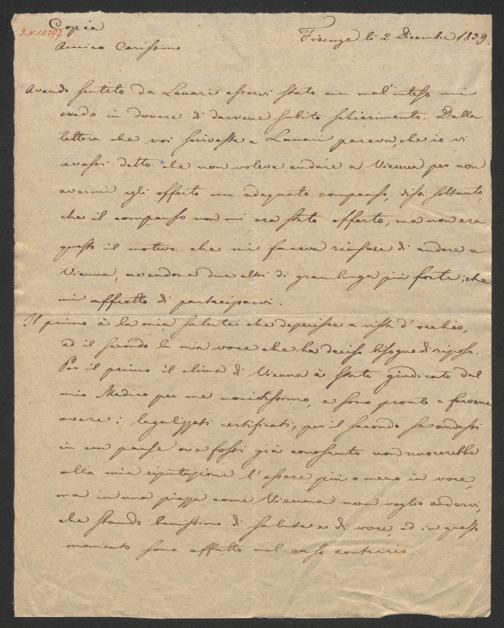 Copia
Firenze li 2 Dicembre 1839.
Amico Carissimo
Avendo sentito da Lanari esservi stato un mal'inteso mi
credo in dovere di darvene subito schiarimento. Dalla
lettera che voi scriveste a Lanari pareva che io vi
avessi detto che non voleva andare a Vienna per non
avermi egli offerto un adeguato compenso, dissi soltanto,
che il compenso non mi era stato offerto, ma non era
questo il motivo che mi faceva ricusare di andare a
Vienna, avendone due altri di gran lunga più forte; che
mi affretto di parteciparvi.
Il primo è la mia salute che deperisce a vista d'occhio,
ed il secondo la mia voce che ha deciso bisogno di riposo.
Per il primo il clima di Vienna è stato giudicato dal
mio Medico per me nocivissimo, e sono pronto a farvene
avere i legalizzati certificati; per il secondo se andassi
in un paese ove fossi già conosciuto non nuocerebbe
alla mia riputazione l'essere più o meno in voce,
ma in una piazza come Vienna non voglio andarvi,
che stando benissimo di salute e di voce, ed in questo
momento sono affatto nel caso contrario.